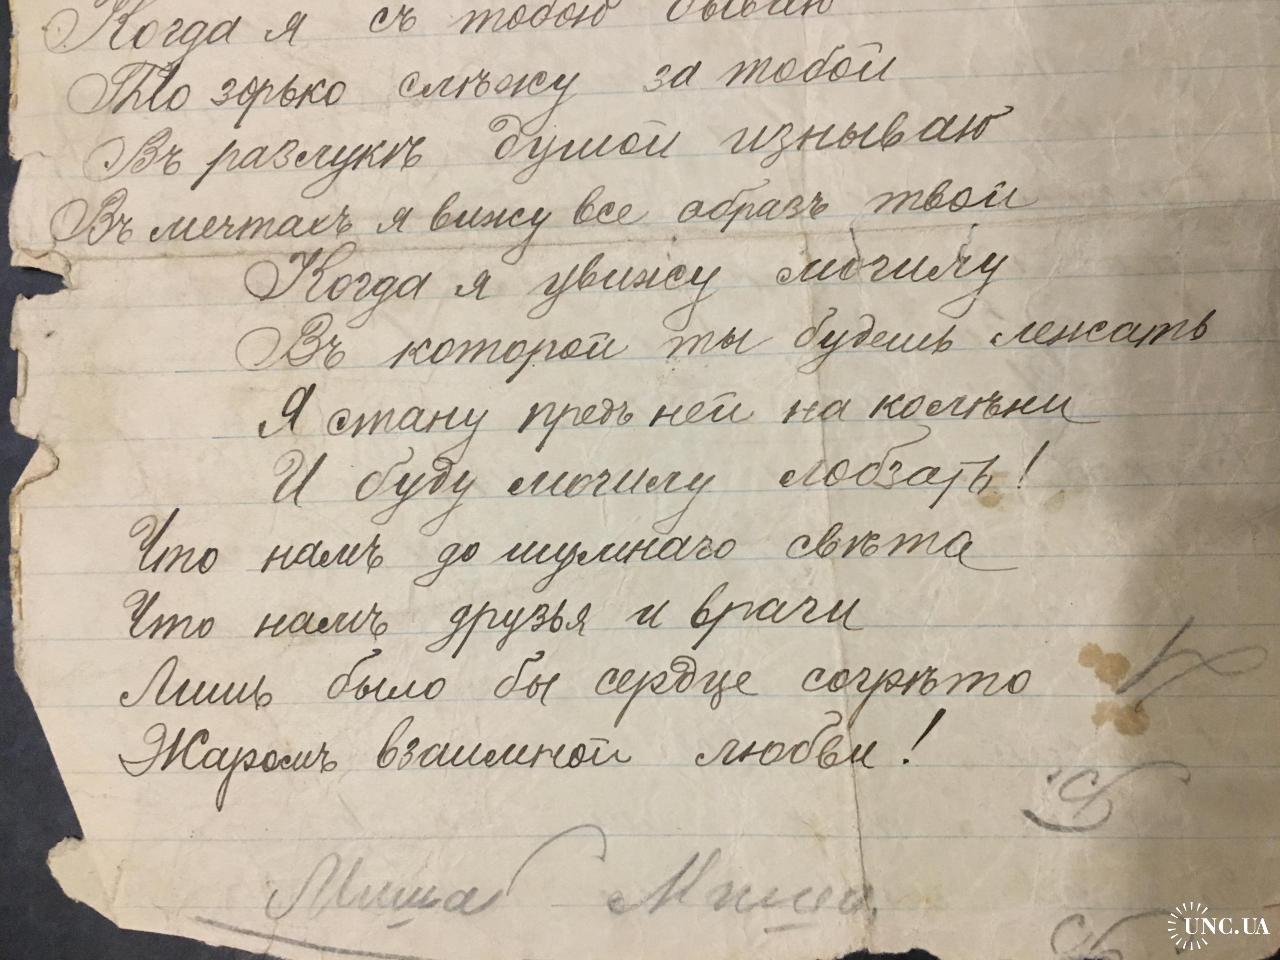 Когда я съ тобою бываю
То зорько слѣжу за тобой
Въ разлукѣ думой изнываю
Въ мечтахъ я вижу все образъ твой
Когда я увижу могилу
Въ которой ты будешь лежать
Я стану предъ ней на колѣни
И буду могилу лобзать!
Что намъ до шумнаго свѣта
Что намъ друзья и врачи
Лишь было бы сердце согрѣто
Жаромъ взаимной любви!
Миша Миша
UNC.UA